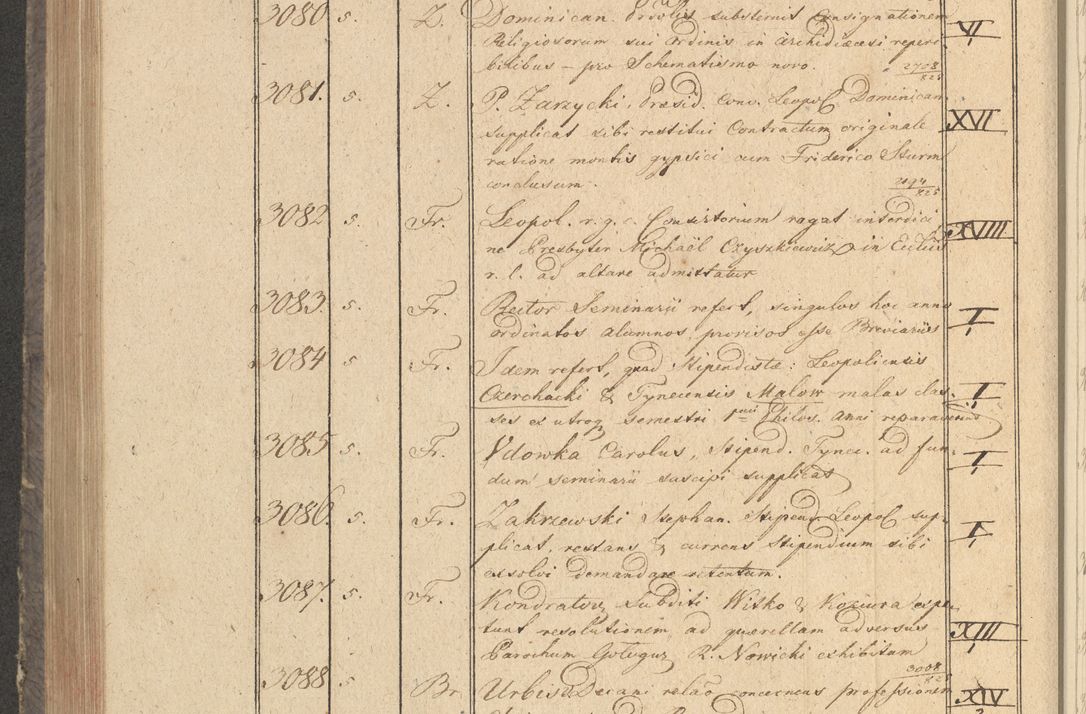 3080. 5. Z. Dominican. substernit Consignationem VI
Religiosorum sui Ordinis in Archidiœcesi reperi
bilibus – pro Schematismo novo. 2708/825
3081. 5. Z. P. Zarzycki, Præsid. Conv. Leopol. Dominican. XVI
supplicat sibi restitui Contractum originale
ratione montis gypsici cum Friderico Sturm
conclusum. 825
3082 5. Fr. Leopol. r. g. c. Consistorium rogat interdici XVIII
ne Presbyter Michaël Czyszkiewicz in
r. l. ad altare admittatur
3083. 5. Fr. Rector Seminarii refert, singulos hoc anno I
ordinatos alumnos provisos esse Breviariis
3084 5 Fr. Idem refert, quod Stipendistæ: Leopoliensis
Czerchacki & Tynecensis Malow malas clas- I
ses ex utroq semestri 1mi Philos. Anni reparaverint
3085 5. Fr. Vdowka Carolus, Stipend. Tynec. ad fun- I
dum Seminarii suscipi supplicat
3086. 5. Fr. Zakrzewski Stephan. Stipend. Leopol. sup- I
plicat, restans & currens Stipendium sibi
exsolvi demandare
3087. 5. Fr. Kondratow Subditi Witko & Koziura expe-
tunt resolutionem ad quærellam adversus XIII
Parochum R. Nowicki exhibitam
3088 5 Br. Urbis Decani relao concernens professionem 3008/825 XIV